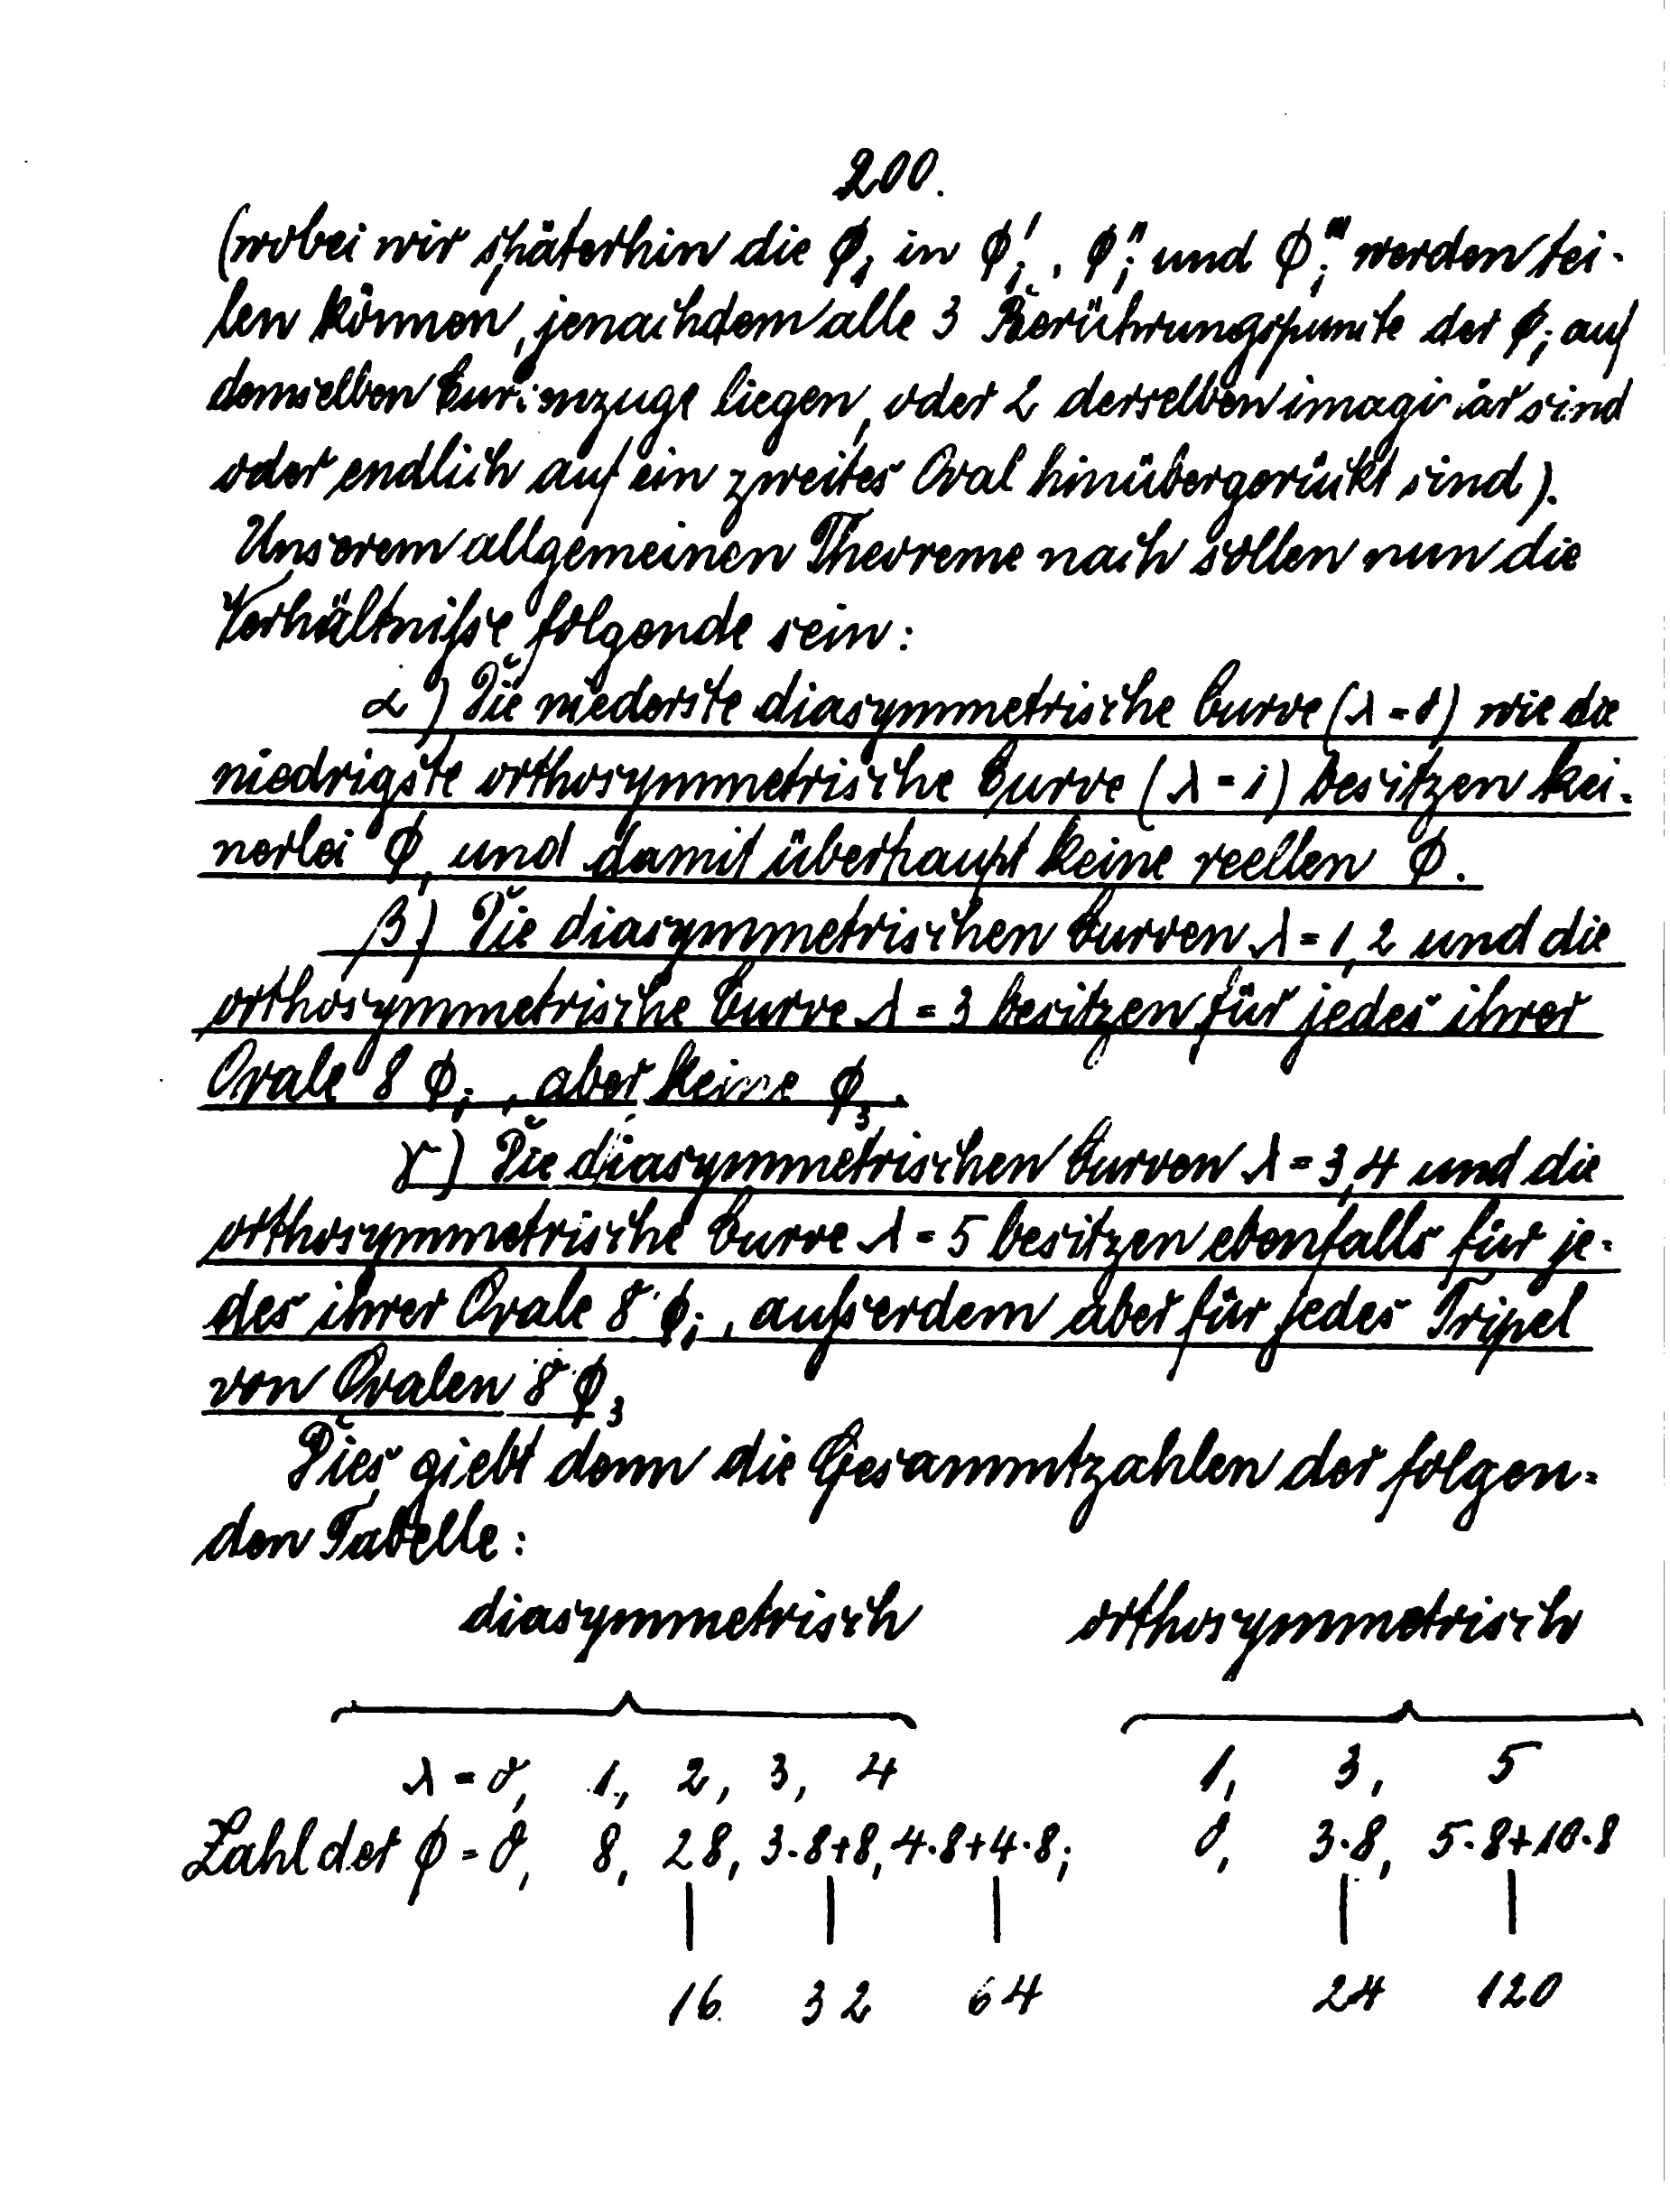 200.
(wobei wir späterhin die φ₁ in φ₁', φ₁'' und φ₁''' werden tei-
len können, jenachdem alle 3 Berührungspunkte der φ₁ auf
demselben Curvenzuge liegen, oder 2 derselben imaginär sind
oder endlich auf ein zweites Oval hinübergerückt sind).
Unserem allgemeinen Theoreme nach sollen nun die
Verhältnisse folgende sein:
α) Die niederste diasymmetrische Curve (λ = 0) wie die
niedrigste orthosymmetrische Curve (λ = 1) besitzen kei-
nerlei φ, und damit überhaupt keine reellen φ.
β) Die diasymmetrischen Curven λ = 1, 2 und die
orthosymmetrische Curve λ = 3 besitzen für jedes ihrer
Ovale 8 φ₁, aber keine φ₃.
γ) Die diasymmetrischen Curven λ = 3, 4 und die
orthosymmetrische Curve λ = 5 besitzen ebenfalls für je-
des ihrer Ovale 8 φ₁, außerdem aber für jedes Tripel
von Ovalen 8 φ₃
Dies giebt denn die Gesammtzahlen der folgen-
den Tabelle:
diasymmetrisch orthosymmetrisch
λ = 0, 1, 2, 3, 4 1, 3, 5
Zahl der φ = 0, 8, 2 8, 3·8+8, 4·8+4·8; 0, 3·8, 5·8+10·8
16 32 64 24 120